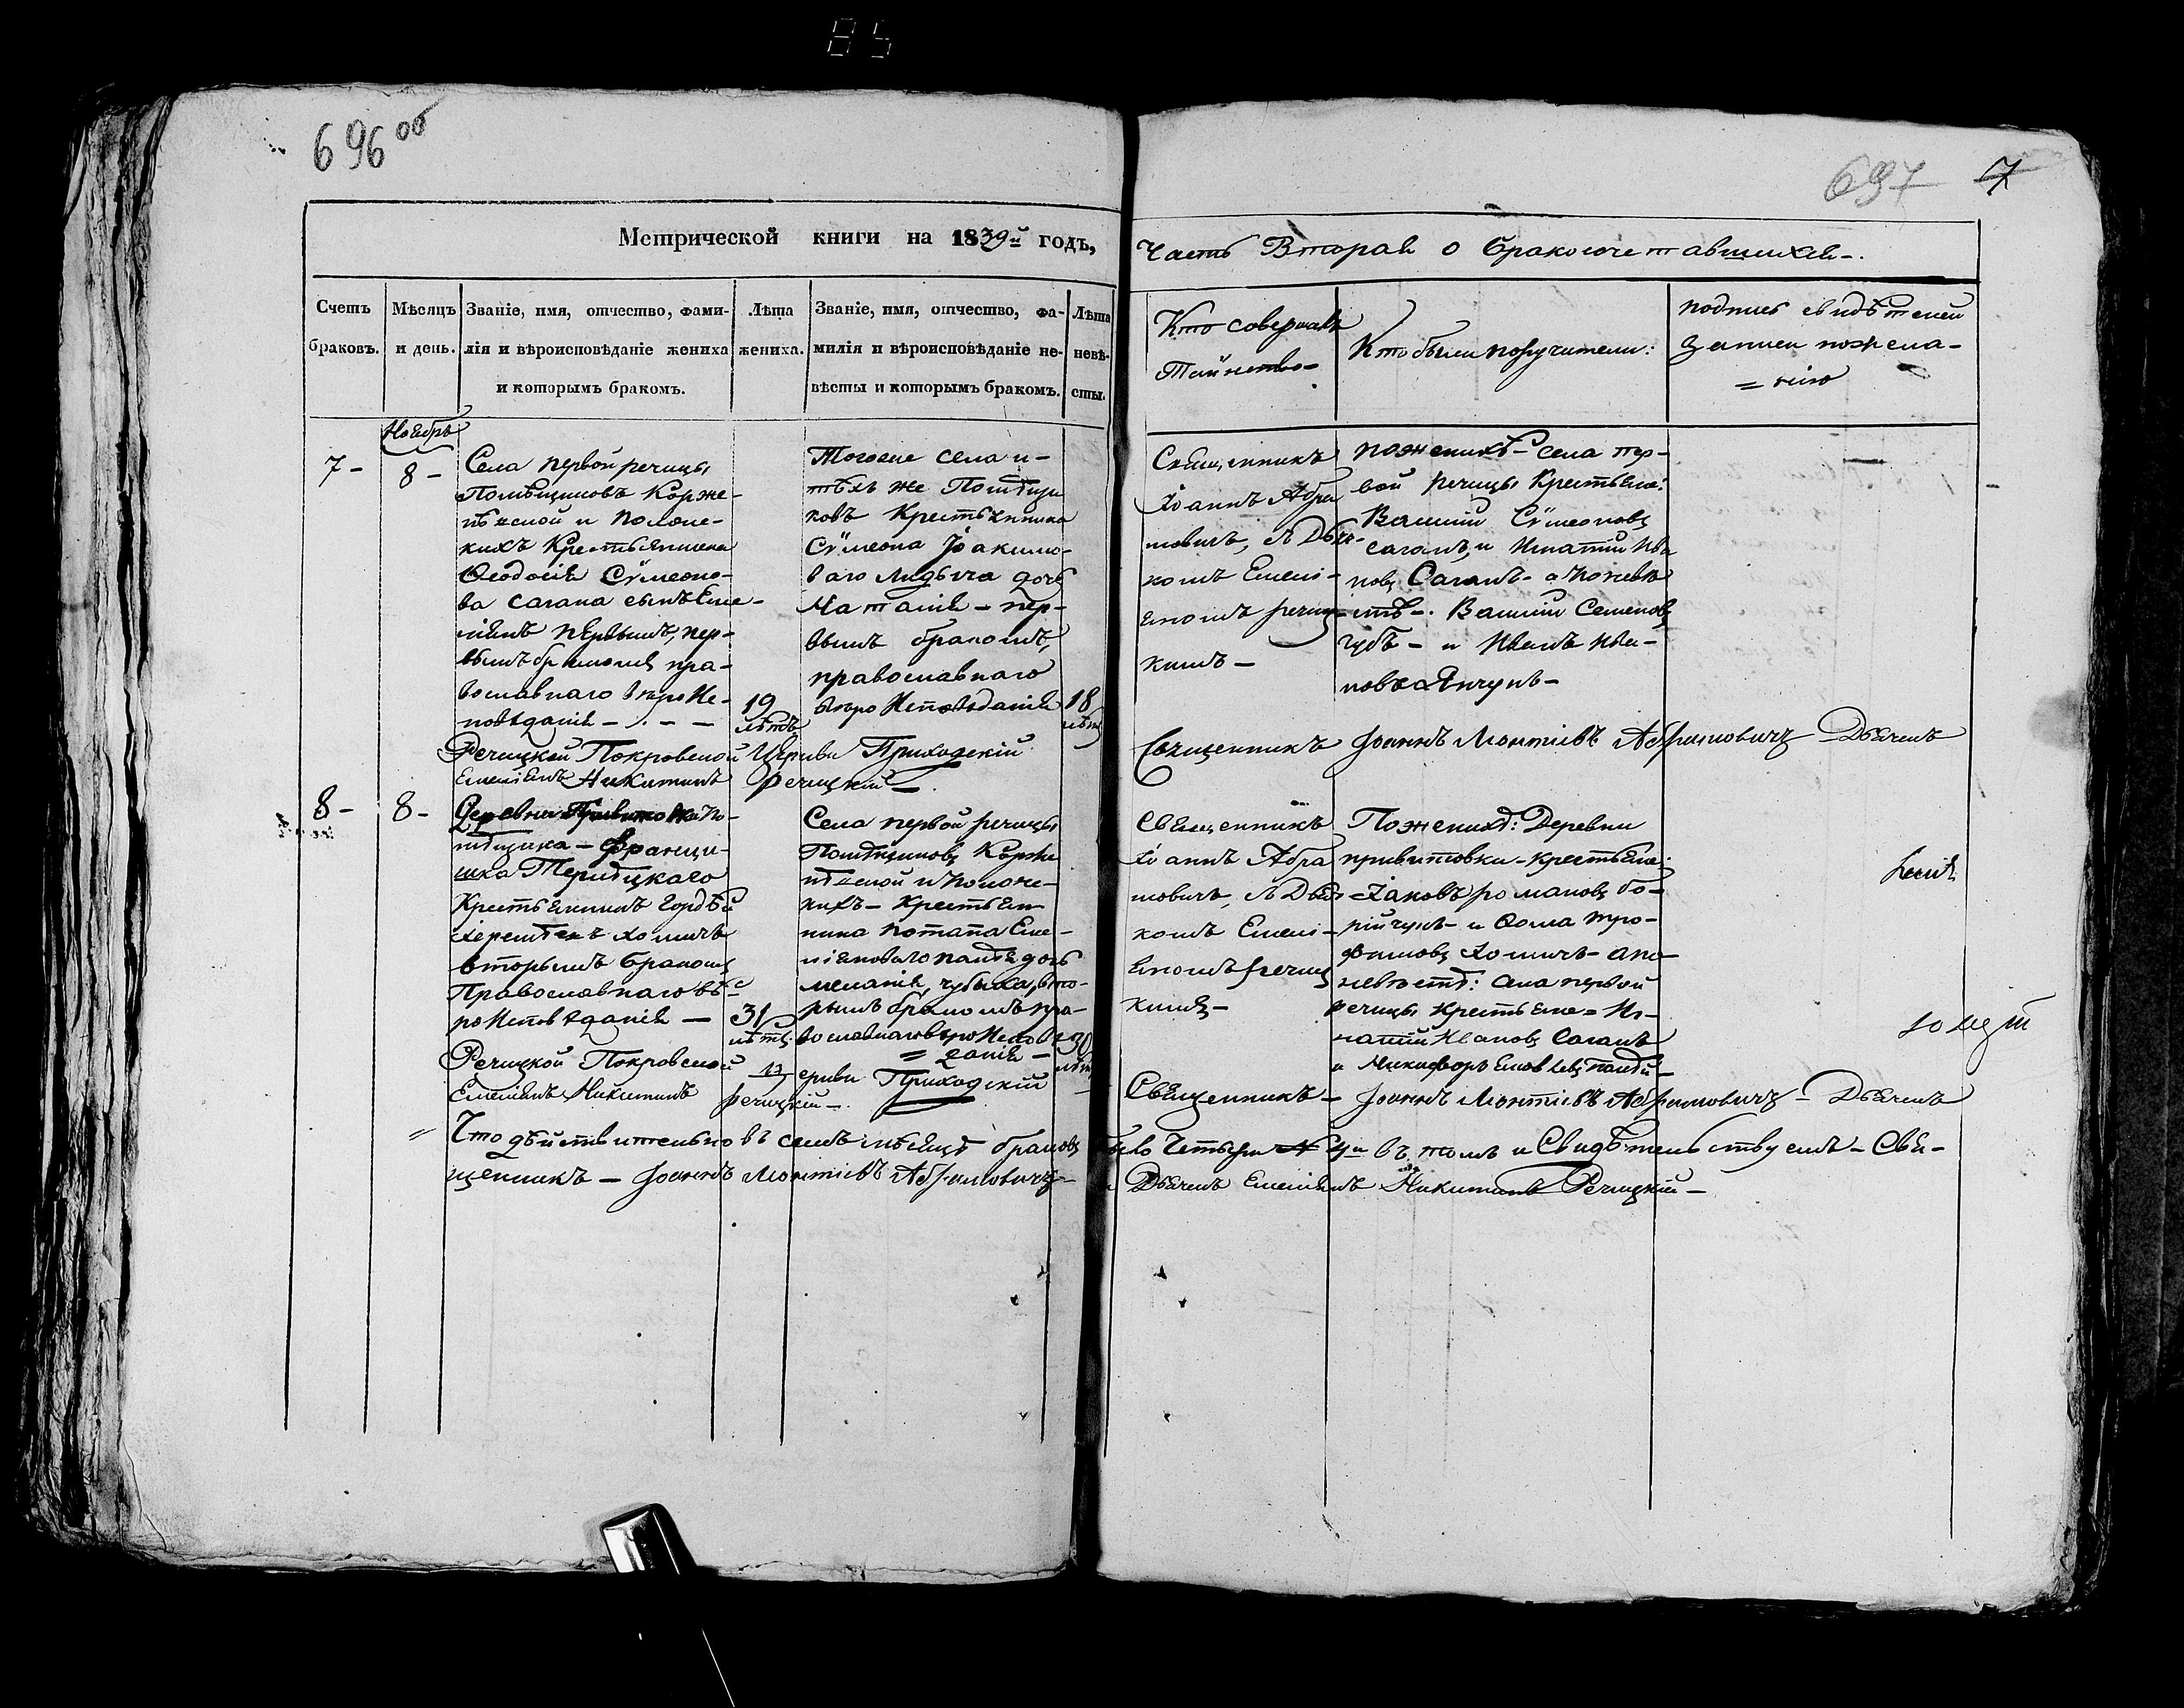 85
696 об
697 7
Метрической книги на 1839й годъ,
Часть Вторая о бракосочетавшихся -.
Счетъ браковъ.
Мѣсяцъ и день.
Званіе, имя, отчество, фами-
лія и вѣроисповѣданіе жениха
и которымъ бракомъ.
Лѣта
жениха.
Званіе, имя, отчество, фа-
милія и вѣроисповѣданіе не-
вѣсты и которымъ бракомъ.
Лѣта
невѣ-
сты.
Кто совершалъ
Таинство -
Кто были поручители:
подпись свидѣтелей
записи по жела-
= нію
Ноябрь
7 -
8 -
Села первой речицы
Помѣщиковъ Корже-
нѣвской и
Крестьянина
Ѳеодосія Сѵмеоно-
ва сагана сынъ Еме-
ліянъ первымъ, пер-
вымъ бракомъ пра-
вославнаго вѣроис-
повѣданія -
19
лѣтъ
Тогоже села и -
тѣхъ же Помѣщи
ковъ Крестьянина
Сѵмеона Іоакимо-
ваго дочь
- пер-
вымъ бракомъ,
православнаго
вѣроисповѣданія
18
лѣтъ
Священникъ
Іоаннъ Абра
мовичъ, съ Дья-
комъ Емелі-
яномъ речиц-
кимъ -
по женихѣ - села пер-
вой речицы Крестьяне:
Василій Сѵмеоновъ
саганъ, и Игнатій Ива
новъ Саганъ - а по невѣ
стѣ -. Василій Семеновъ
губъ - и Иванъ Ива-
новъ Янчукъ -
Речицкой Покровской Церкви Приходскій Священникъ Іоаннъ Абрамовичъ - Дьячекъ
Емеліянъ Никитинъ Речицкій -
8 -
8 -
Деревни Привитовки По-
мѣщика - Франци-
шка
Крестьянинъ Гордѣй
хомичъ
вторымъ бракомъ
Православнаго вѣ-
роисповѣданія -
31
лѣтъ
Села первой речицы
Помѣщиковъ Корже
нѣвской и
- Крестьян
нина Потапа Еме-
ліяноваго дочь
меланія, вто-
рымъ бракомъ пра-
вославнаго вѣроисповѣ
= данія -
30
лѣтъ
Священникъ
Іоаннъ Абра
мовичъ, съ Дья-
комъ Емелі-
яномъ речиц
кимъ -
По женихѣ: Деревни
привитовки - крестьяне:
Іаковъ романовъ бо-
и Ѳома тро-
фимовъ хомичъ - а по
невѣстѣ: села первой
речицы крестьяне = Иг-
натій Ивановъ Саганъ
и Никифоръ
Речицкой Покровской Церкви Приходскій Священникъ - Іоаннъ Абрамовичъ - Дьячекъ
Емеліянъ Никитинъ речицкій -.
= Что дѣйствительно въ семъ мѣсяцѣ браковъ было Четыри № 4и въ томъ и Свидѣтельствуемъ - Свя-
щенникъ - Іоаннъ Абрамовичъ - и Дьячекъ Емеліянъ Никитинъ Речицкій -